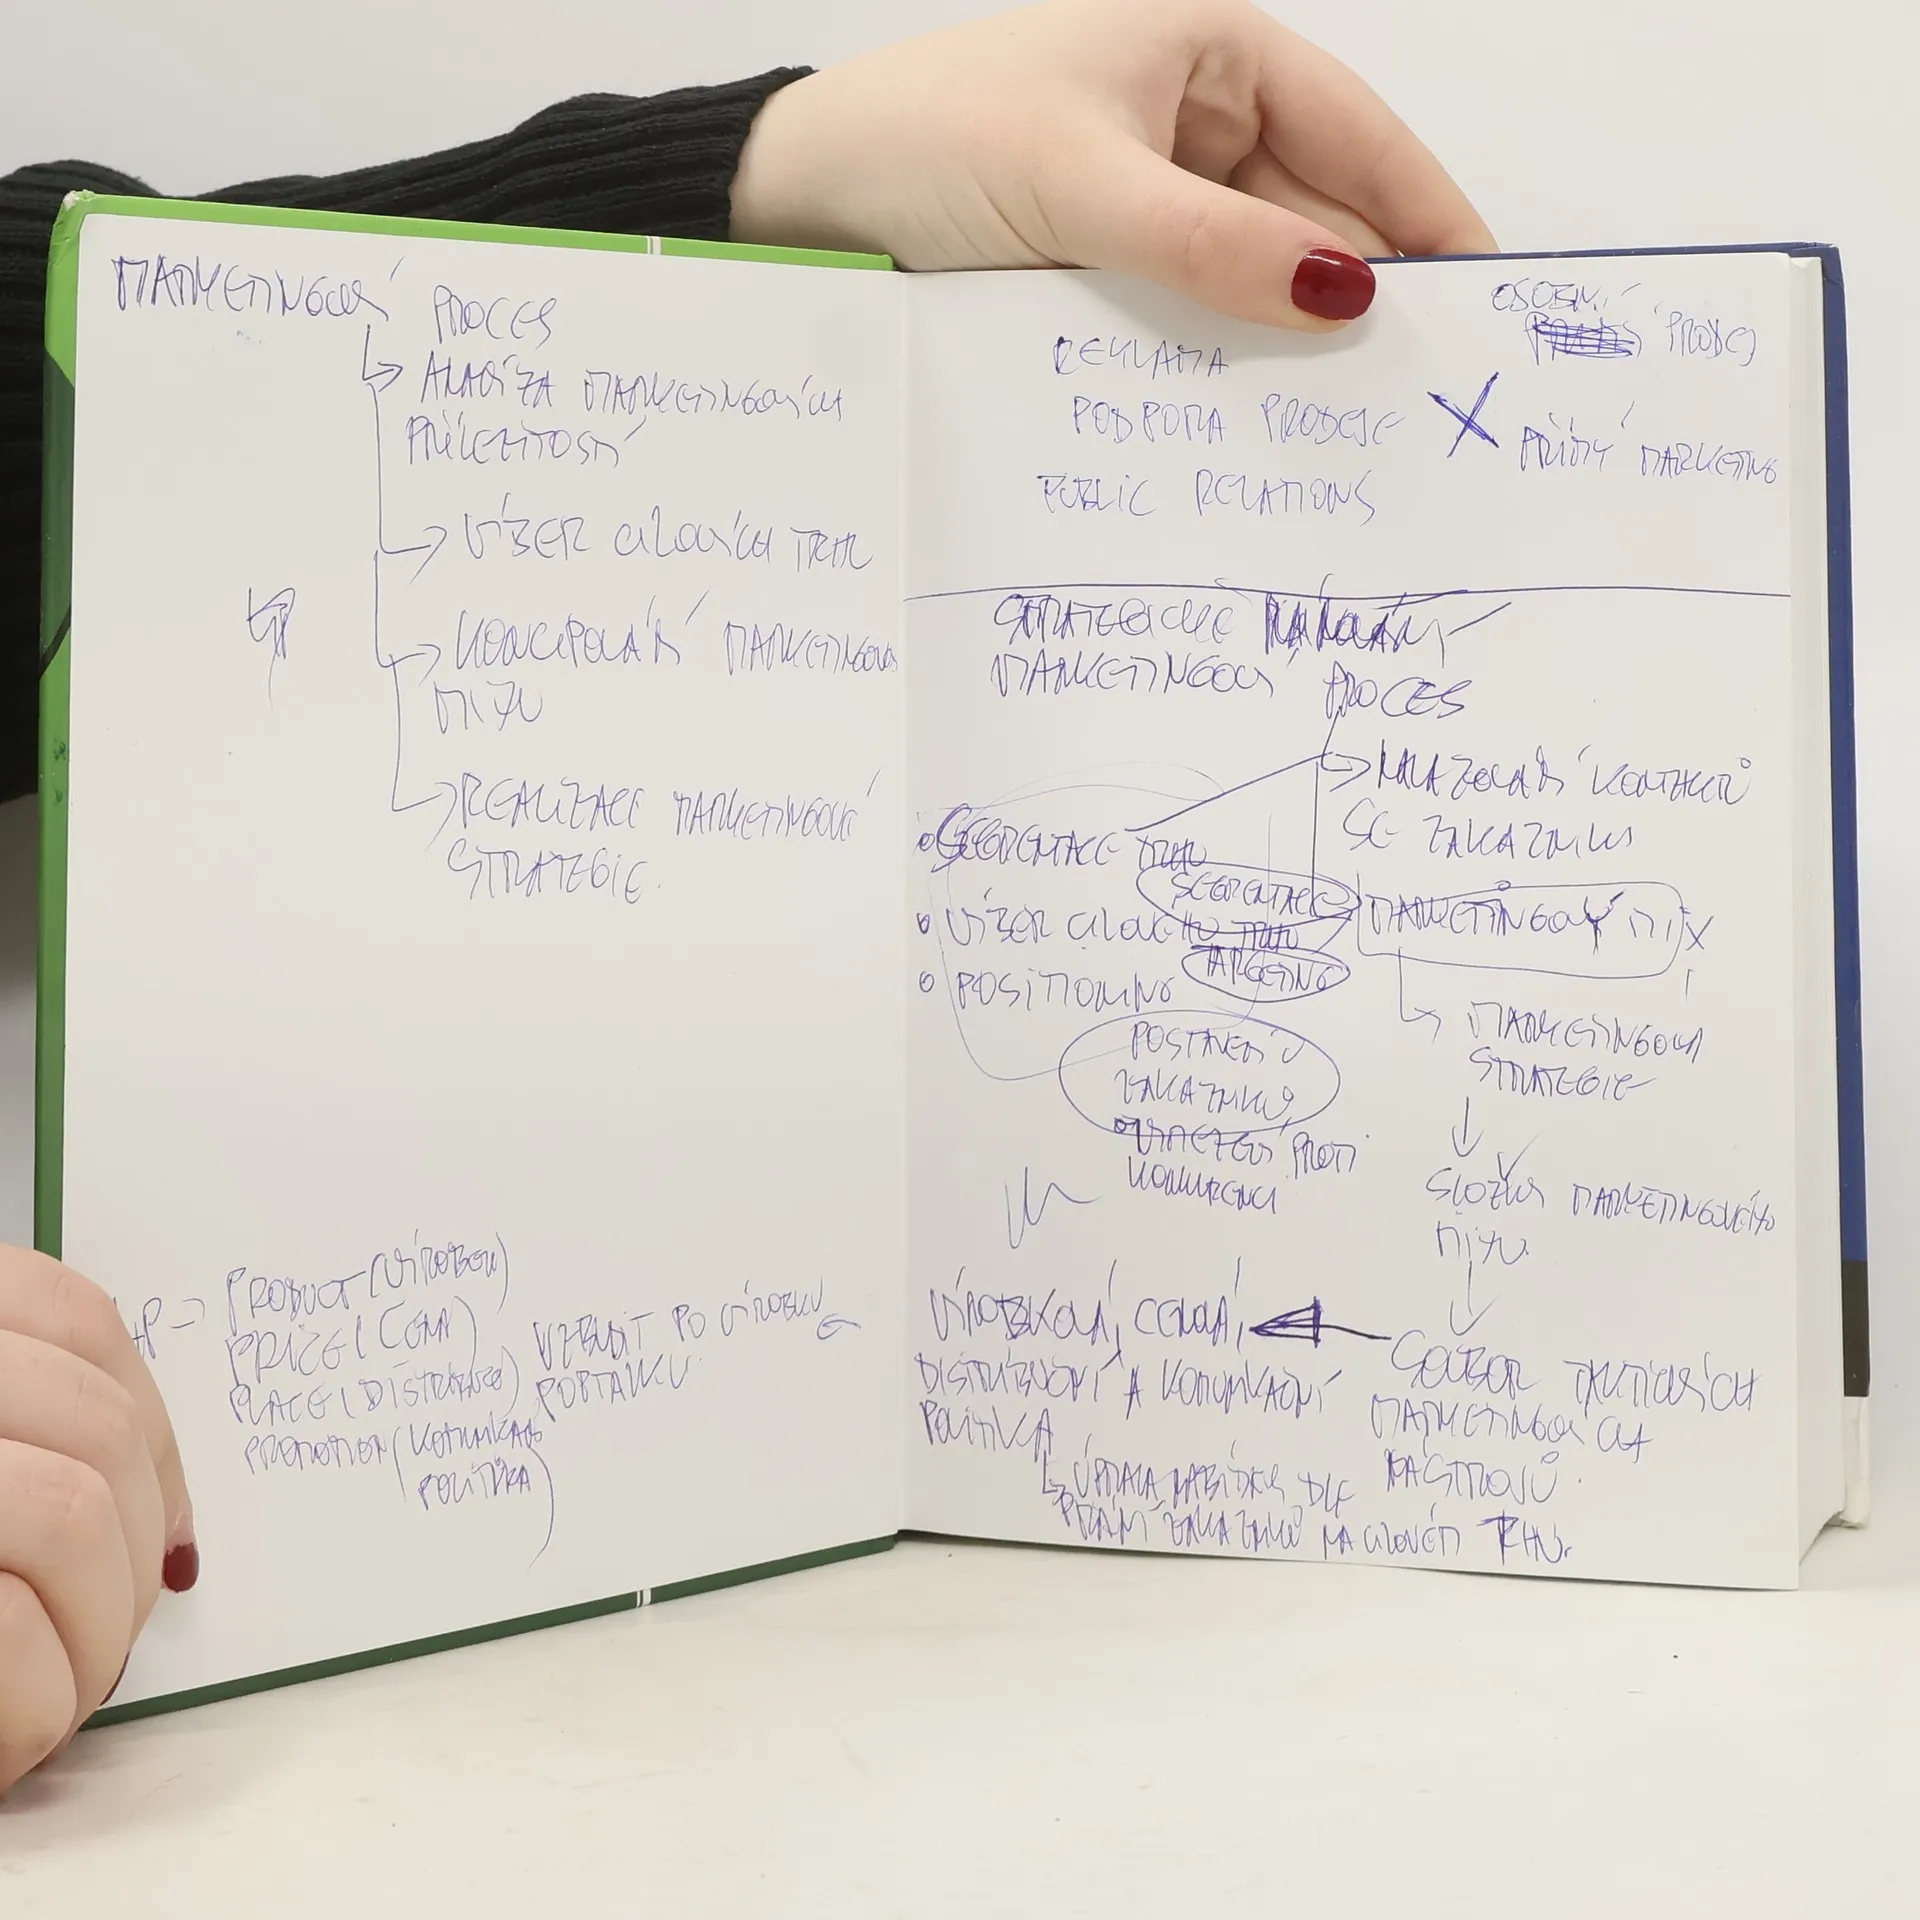 MARKETINGOVÝ PROCES
ANALÍZA MARKETINGOVÍCH
PŘÍLEŽITOSTÍ
VÍBĚR CÍLOVÍCH TRHŮ
KONCIPOVÁNÍ MARKETINGOVÉHO
MIXU
REALIZACE MARKETINGOVÉ
STRATEGIE.
4P PRODUCT (VÍROBEK)
PRICE (CENA)
PLACE (DISTRIBUCE)
PROMOTION (KOMUNIKAČNÍ
POLITIKA)
VZBUDIT PO VÍROBKU
POPTÁVKU.
OSOBNÍ
PRODEJ
REKLAMA
PODPORA PRODEJE X PŘÍMÝ MARKETING
PUBLIC RELATIONS
STRATEGICKÉ
MARKETINGOVÝ PROCES
NAVAZOVÁNÍ KONTAKTŮ
SE ZÁKAZNÍKY
SEGMENTACE TRHU
SEGMENTACE
VÍBĚR CÍLOVÉHO TRHU
TARGETING
POSITIONING
MARKETINGOVÝ MIX
POSTAVENÍ U
ZÁKAZNÍKŮ
VYMEZENÍ PROTI
KONKURENCI
MARKETINGOVÁ
STRATEGIE
SLOŽKY MARKETINGOVÉHO
MIXU.
SOUBOR TAKTICKÍCH
MARKETINGOVÍCH
NÁSTROJŮ.
VÍROBKOVÁ, CENOVÁ,
DISTRIBUČNÍ A KOMUNIKAČNÍ
POLITIKA
ÚPRAVA NABÍDKY DLE
PŘÁNÍ ZÁKAZNÍKŮ NA CÍLOVÉM TRHU.